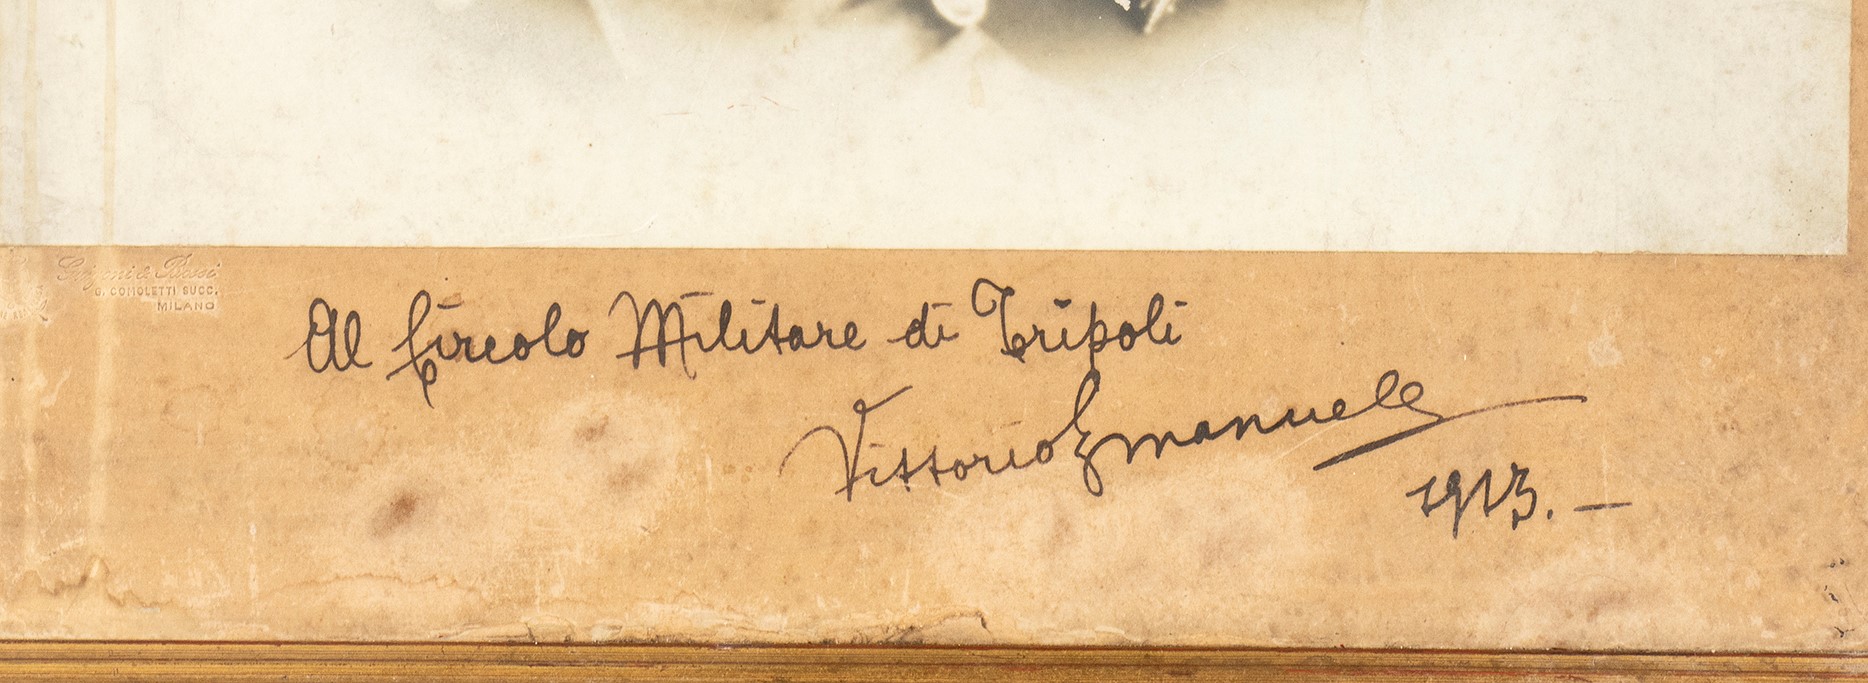 G. COMOLETTI SUCC.
MILANO
Al Circolo Militare di Tripoli
Vittorio Emanuele
1913. —